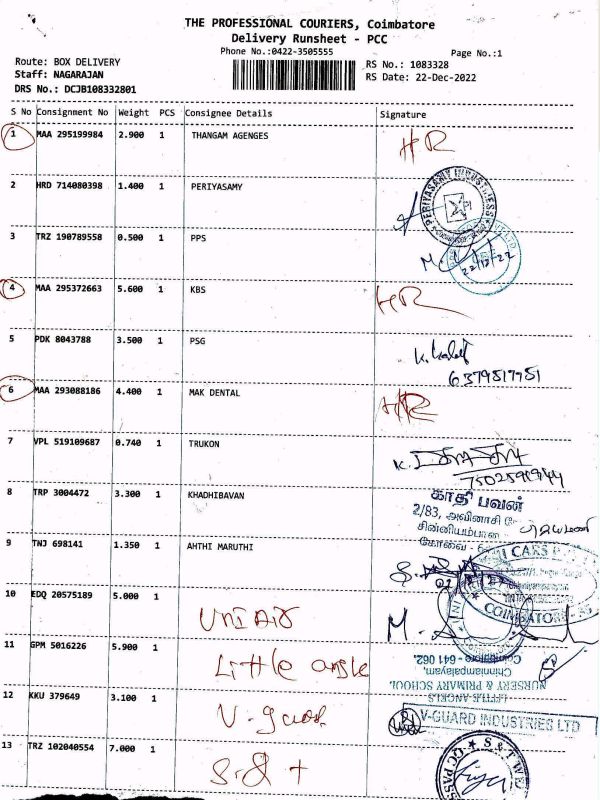 THE PROFESSIONAL COURIERS, Coimbatore
Delivery Runsheet - PCC
Phone No.:0422-3505555
Page No.:1
Route: BOX DELIVERY
RS No.: 1083328
Staff: NAGARAJAN
RS Date: 22-Dec-2022
DRS No.: DCJB108332801
S No Consignment No Weight PCS Consignee Details Signature
1 MAA 295199984 2.900 1 THANGAM AGENGES HR
2 HRD 714080398 1.400 1 PERIYASAMY
PERIYASAMY INDUSTRIESS
3 TRZ 190789558 0.500 1 PPS
22/12/22
4 MAA 295372663 5.600 1 KBS HR
5 PDK 8043788 3.500 1 PSG
6379817951
6 MAA 293088186 4.400 1 MAK DENTAL HR
7 VPL 519109687 0.740 1 TRUKON
8 TRP 3004472 3.300 1 KHADHIBAVAN
காதி பவன்
2/83, அவினாசி
சின்னியம்பா
கோவை -
9 TNJ 698141 1.350 1 AHTHI MARUTHI
CARS
COIMBATORE
10 EDQ 20575189 5.000 1 UNI AIR
11 GPM 5016226 5.900 1 Little angle
Coimbatore - 641 062.
Chinniampalayam,
NURSERY & PRIMARY SCHOOL
LITTLE ANGELS
12 KKU 379649 3.100 1 V-guard
V-GUARD INDUSTRIES LTD
13 TRZ 102040554 7.000 1 S & T
S & T WE